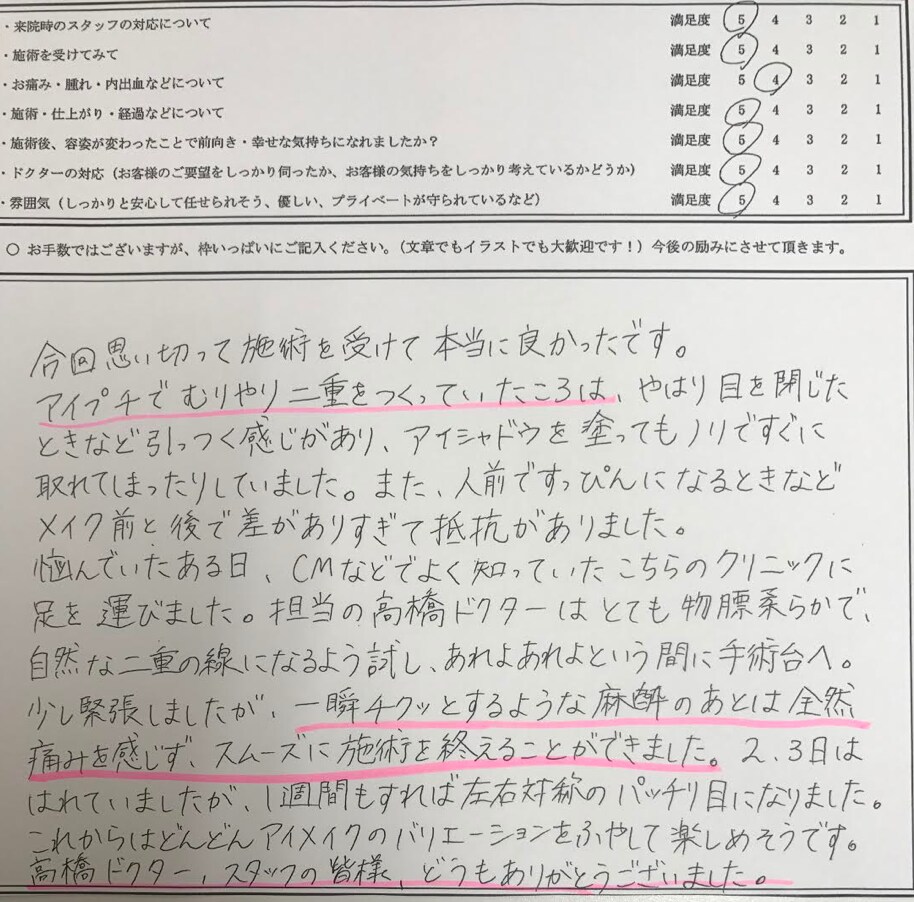 ・来院時のスタッフの対応について 満足度 5 4 3 2 1
・施術を受けてみて 満足度 5 4 3 2 1
・お痛み・腫れ・内出血などについて 満足度 5 4 3 2 1
・施術・仕上がり・経過などについて 満足度 5 4 3 2 1
・施術後、容姿が変わったことで前向き・幸せな気持ちになれましたか？ 満足度 5 4 3 2 1
・ドクターの対応（お客様のご要望をしっかり伺ったか、お客様の気持ちをしっかり考えているかどうか） 満足度 5 4 3 2 1
・雰囲気（しっかりと安心して任せられそう、優しい、プライベートが守られているなど） 満足度 5 4 3 2 1
○ お手数ではございますが、枠いっぱいにご記入ください。（文章でもイラストでも大歓迎です！）今後の励みにさせて頂きます。
今回思い切って施術を受けて本当に良かったです。
アイプチでむりやり二重をつくっていたころは、やはり目を閉じた
ときなど引っつく感じがあり、アイシャドウを塗ってもノリですぐに
取れてしまったりしていました。また、人前ですっぴんになるときなど
メイク前と後で差がありすぎて抵抗がありました。
悩んでいたある日、CMなどでよく知っていたこちらのクリニックに
足を運びました。担当の高橋ドクターはとても物腰柔らかで、
自然な二重の線になるよう試し、あれよあれよという間に手術台へ。
少し緊張しましたが、一瞬チクッとするような麻酔のあとは全然
痛みを感じず、スムーズに施術を終えることができました。2、3日は
はれていましたが、1週間もすれば左右対称のパッチリ目になりました。
これからはどんどんアイメイクのバリエーションをふやして楽しめそうです。
高橋ドクター、スタッフの皆様、どうもありがとうございました。